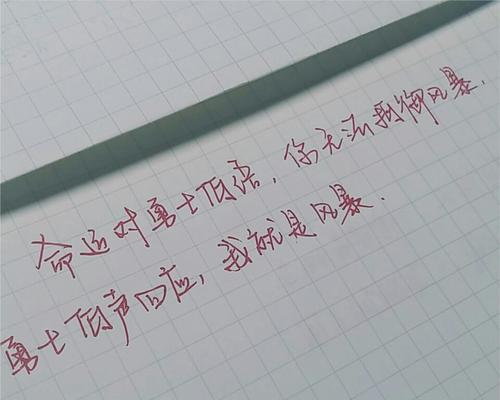 命运对勇士低语，你无法抵御风暴.
勇士低声回应，我就是风暴.